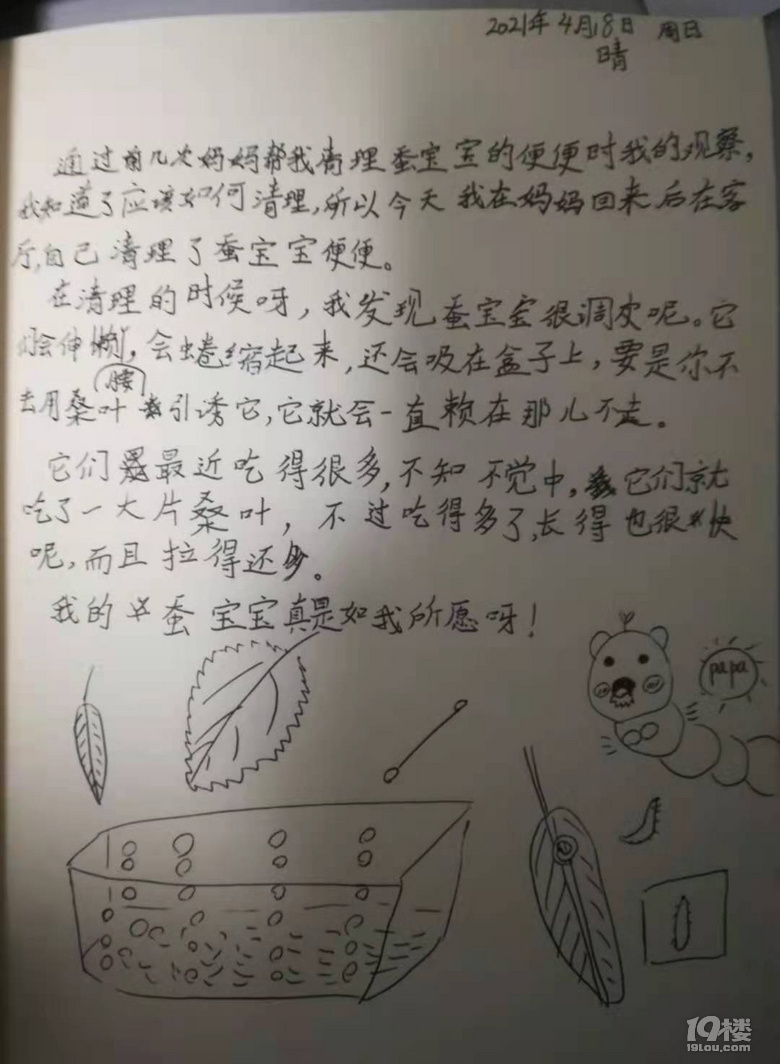 2021年4月18日 周日
晴
通过前几次妈妈帮我清理蚕宝宝的便便时我的观察,
我知道了应该如何清理,所以今天我在妈妈回来后在客
厅,自己清理了蚕宝宝便便。
在清理的时候呀,我发现蚕宝宝很调皮呢。它
们会伸懒腰,会蜷缩起来,还会吸在盒子上,要是你不
去用桑叶引诱它,它就会一直赖在那儿不走。
它们最近吃得很多,不知不觉中,它们就
吃了一大片桑叶,不过吃得多了,长得也很快
呢,而且拉得还多。
我的蚕宝宝真是如我所愿呀!
papa
19楼
19lou.com